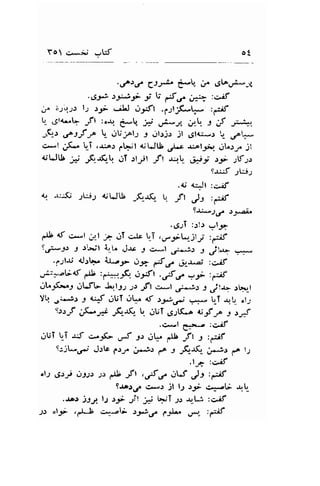 ٥٤ کتاب نخست ٣٥١
پرسش‌های من پاسخ مشروح میدهی.
گفت: چنین میکنم تا تو خوشنود شوی.
گفتم: سپاسگزارم. اکنون لطف خود را دریغ مدار و به این
پرسش نیز پاسخ بده: اگر جامعه‌ای یا
سپاهی یا دسته‌ای از دزدان و راهزنان یا هر گروهی دیگر
از مردمان بخواهند ظالمانه عملی انجام دهند، آیا ممکن است
در کار خود توفیق یابند اگر افراد آن با یکدیگر نیز ظالمانه
رفتار کنند؟
گفت: البته نه.
گفتم: ولی اگر با یکدیگر ظالمانه رفتار نکنند به
مقصود میرسند؟
جواب داد: آری.
گفتم: علت آن جز این است که ظلم
سبب جدال و دشمنی است و عدل مایه اتحاد و دوستی؟
گفت: تصدیق میکنم چون حوصله مجادله ندارم.
گفتم: خوب میکنی. اکنون بگو ببینم: ظلم که خاصیتش
ایجاد جدال و دشمنی است اگر در روابط حاکمان و محکومان
راه یابد آیا سبب نمیشود که میان آنان کینه و
درگیرد و هرگونه همکاری آنان با یکدیگر غیرممکن گردد؟
گفت: صحیح است.
گفتم: و اگر میان دو کس حکومت کند آیا آنان
را هم دشمن یکدیگر و هم دشمن مردم عادل نمیسازد؟
گفت: چرا.
گفتم: ولی گمان میکنی، اگر ظلم در درون فردی راه
یابد خاصیت خود را از دست میدهد؟
گفت: شاید آنجا نیز اثر خود را بروز دهد.
گفتم: پس معلوم میشود خاصیت ظلم، خواه در